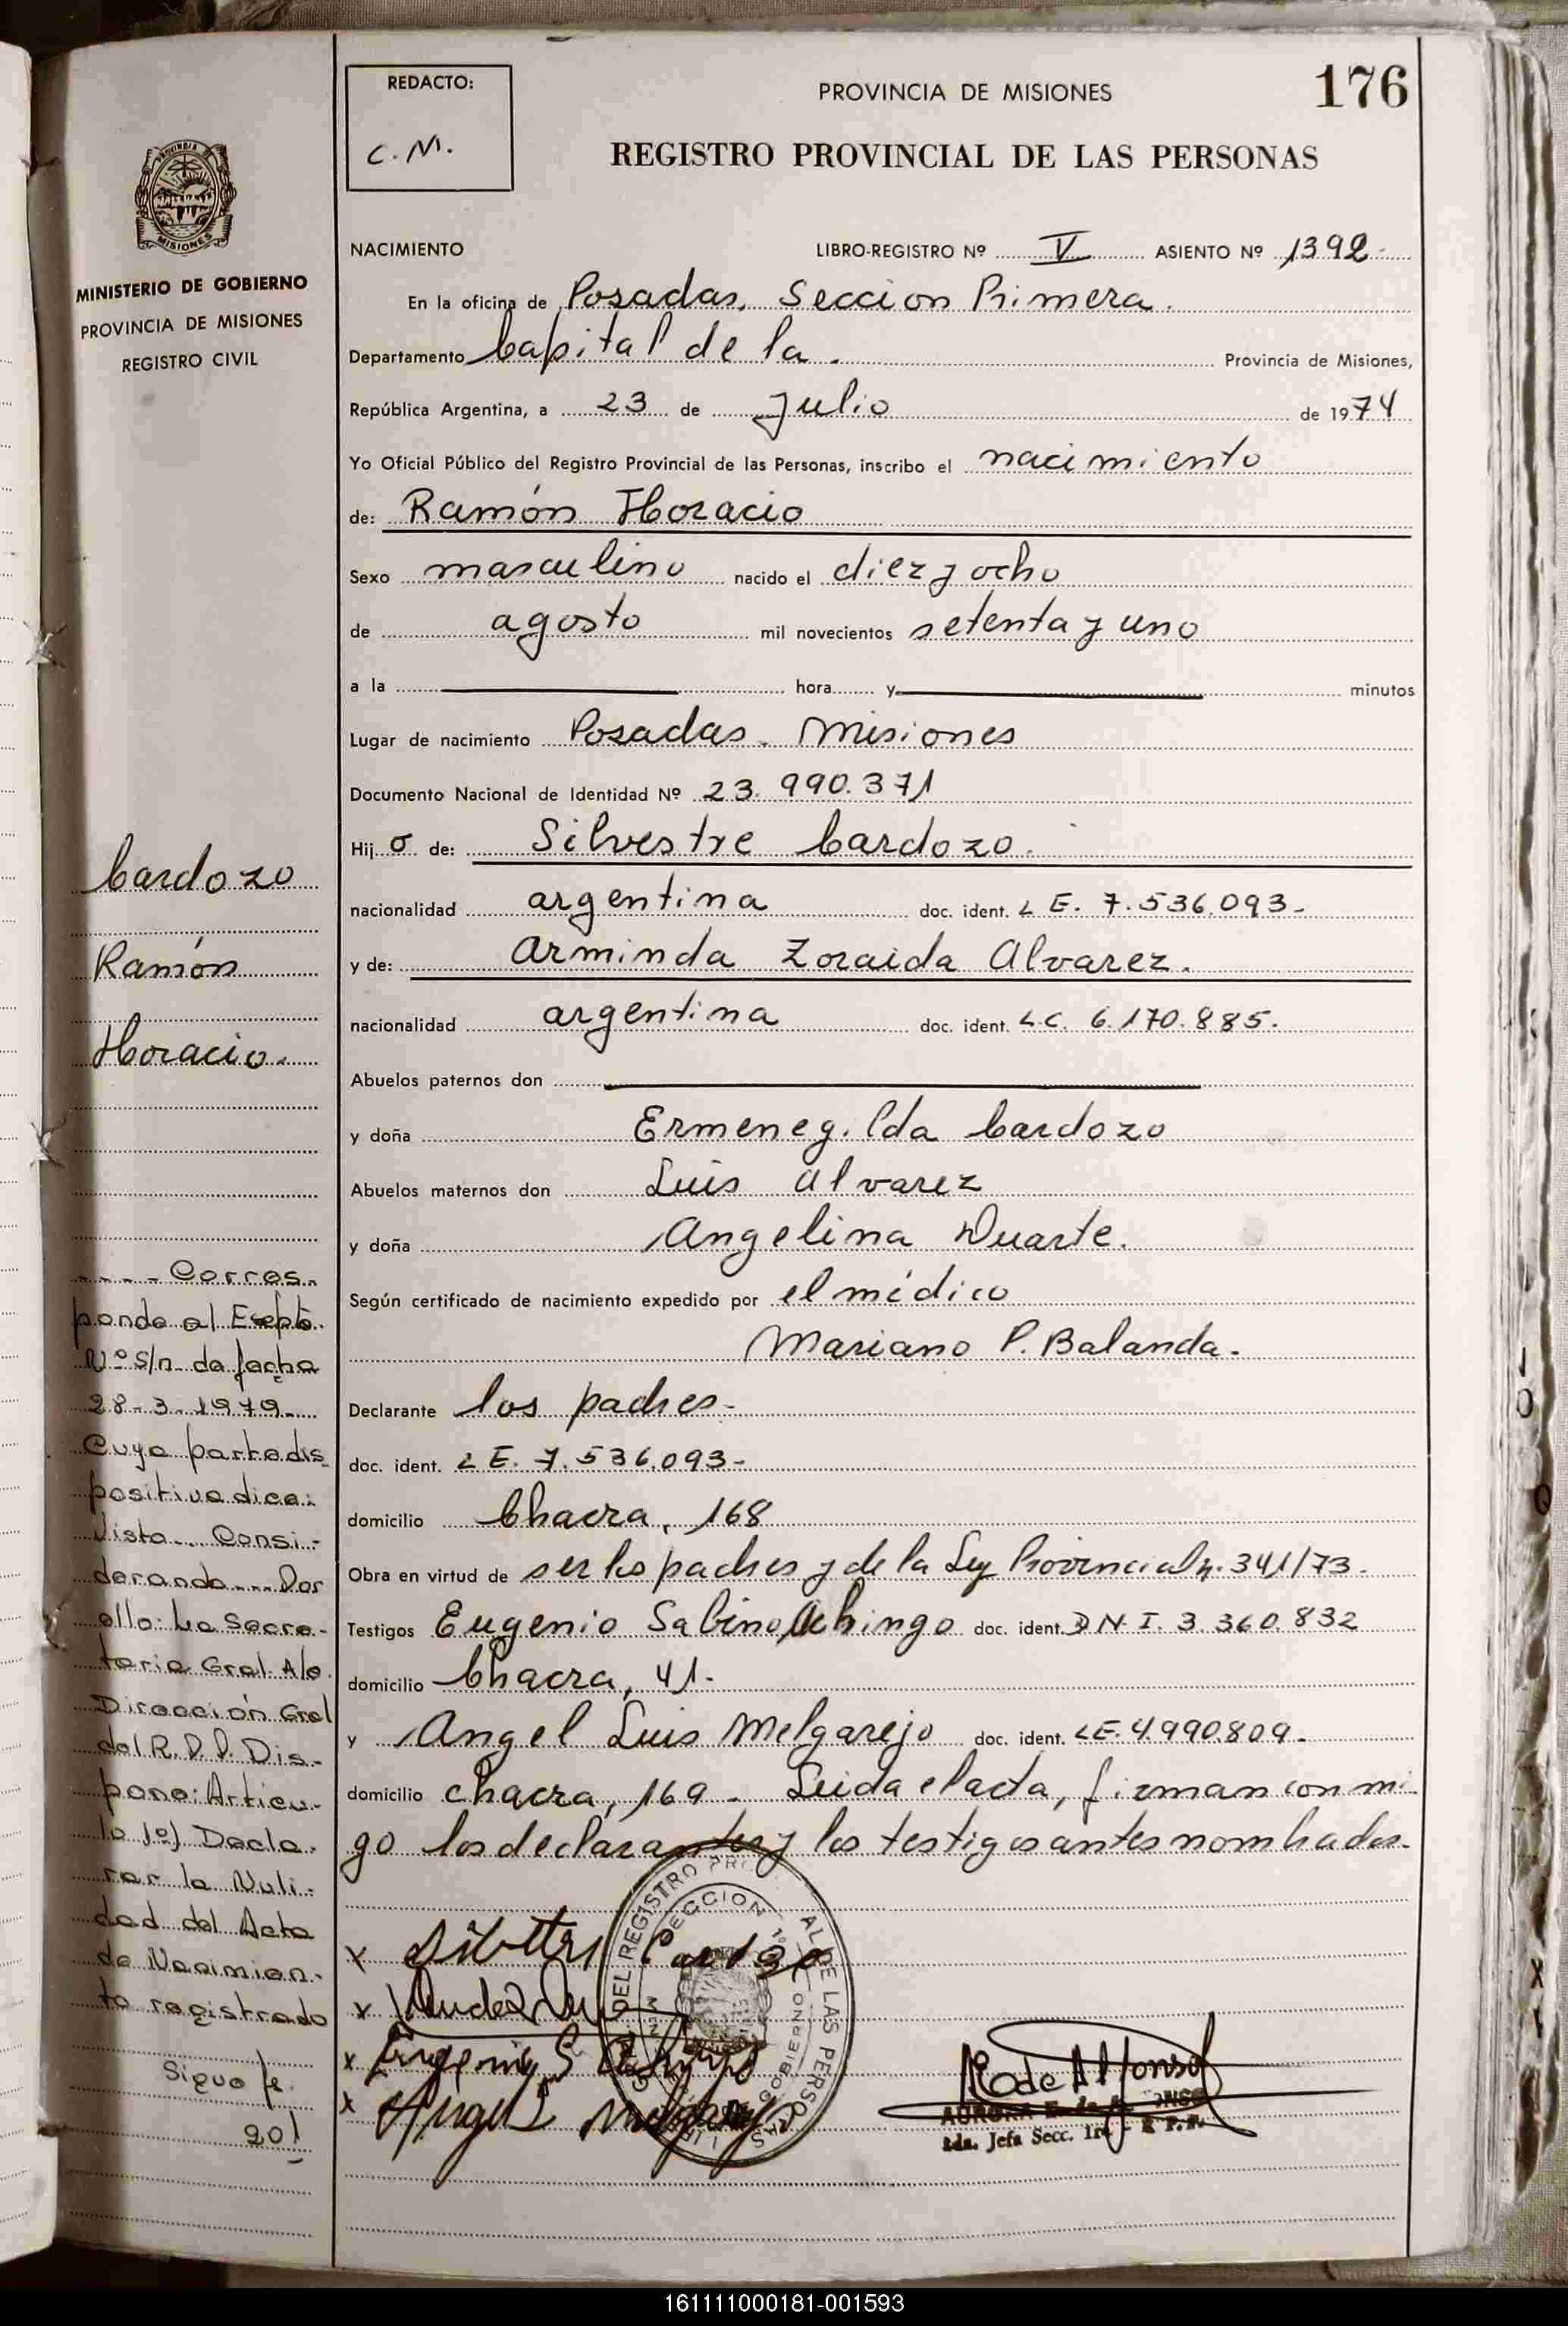 REDACTO:
C. M.
PROVINCIA DE MISIONES
176
REGISTRO PROVINCIAL DE LAS PERSONAS
PROVINCIA DE
MISIONES
MINISTERIO DE GOBIERNO
PROVINCIA DE MISIONES
REGISTRO CIVIL
NACIMIENTO LIBRO-REGISTRO Nº V ASIENTO Nº 1392-
En la oficina de Posadas, Seccion Primera.
Departamento Capital de la. Provincia de Misiones,
República Argentina, a 23 de Julio de 1974
Yo Oficial Público del Registro Provincial de las Personas, inscribo el nacimiento
de: Ramón Horacio
Sexo masculino nacido el diez y ocho
de agosto mil novecientos setenta y uno
a la hora y minutos
Lugar de nacimiento Posadas. Misiones
Documento Nacional de Identidad Nº 23.990.371
Hijo de: Silvestre Cardozo.
nacionalidad argentina doc. ident. L E. 7.536.093-
y de: Arminda Zoraida Alvarez.
nacionalidad argentina doc. ident. L.C. 6.170.885.
Abuelos paternos don
y doña Ermenegilda Cardozo
Abuelos maternos don Luis Alvarez
y doña Angelina Duarte.
Según certificado de nacimiento expedido por el médico
Mariano P. Balanda.
Declarante los padres-
doc. ident. L E. 7.536.093-
domicilio Chacra, 168
Obra en virtud de ser los padres y de la Ley Provincial n. 341/73.
Testigos Eugenio Sabino doc. ident. D N. I. 3.360.832
domicilio Chacra, 41-
y Angel Luis Melgarejo doc. ident. LE. 4.990.809-
domicilio chacra, 169- Leida el acta, firman con mi
go los declarantes y los testigos antes nombrados-
Cardozo
Ramón
Horacio.
---- Corres-
ponde al Expte.
Nº S/n de fecha
28-3-1979-
Cuya parte dis-
positiva dice:
Visto... Consi-
derando... Por
ello: La Secre-
taria Gral. A/c.
Dirección Gral
del R.P.P. Dis-
pone: Artícu-
lo 1º) Decla-
rar la Nuli-
dad del Acta
de Nacimien-
to registrado
Sigue fº
201
x
x
x
x
DEL REGISTRO PR AL DE LAS PERSONAS
SECCION 1º
GOBIERNO
R. de Alfonso
AURORA
2da. Jefa Secc. 1ra.
161111000181-001593